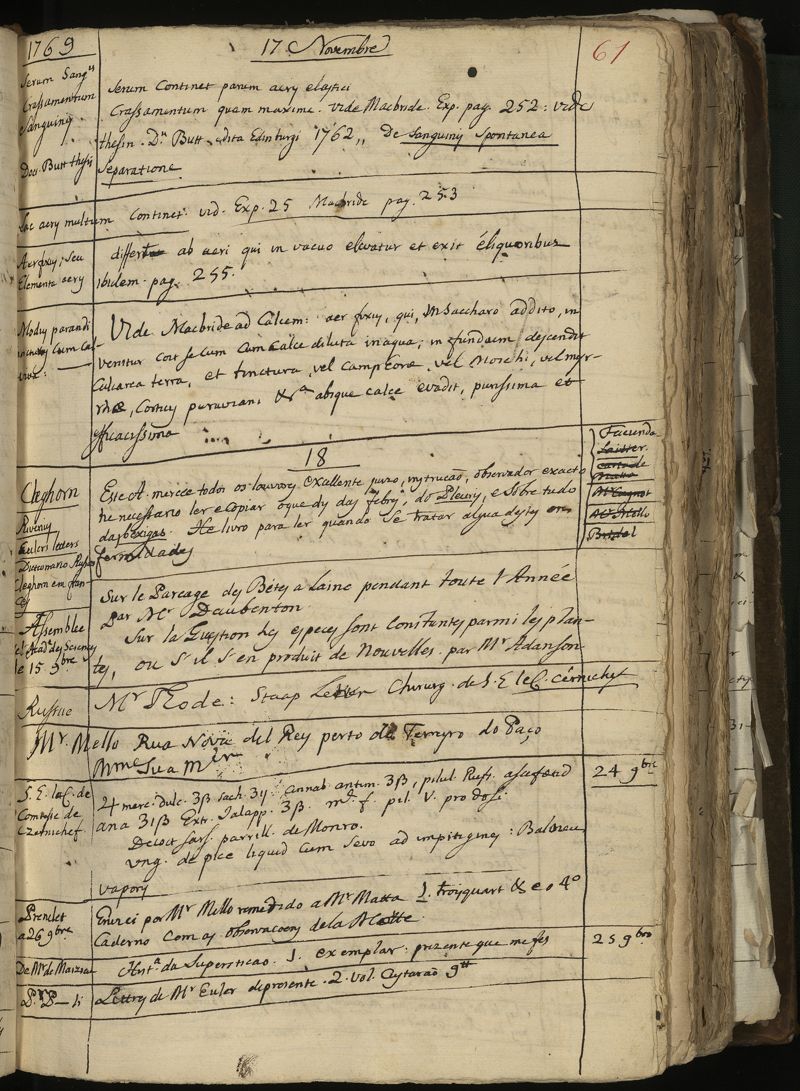 1769
17 Novembre
61
Serum Sangs
Crassamentum
Sanguinis
Doct. Butt thesis
Serum Continet parum aeris elastici
Crassamentum quam maxime. vide Macbride. Exp. pag. 252: vide
thesin. Dn Butt edita Edinburgi 1762,, De Sanguinis Spontanea
Separatione
Lac aeris multum Continet. vid. Exp. 25 Macbride pag. 253
Aer fixus, seu
Elementa aerys
differt ab aeri qui in vacuo elevatur et exit é liquoribus
ibidem. pag. 255.
Modus parandi
tincturas Cum Cal-
viva:
Vide Macbride ad Calcem: aer fixus, qui, in Saccharo addito, in
venitur coit se cum Cum Calce diluta in aqua; in fundum descendit
Calcarea terra, et tinctura, vel Camphorae, vel Moschi, vel myr-
rhae, Corticis peruviani &ra absque calce evadit, purissima et
efficacissima
18
Cleghorn
Este A. merece todos os louvores excellente juizo, instrucaõ, observador exacto
he necessario ler e copiar o que dis das febres, do Pleuris, e sobre tudo
das bexigas. He livro para ler quando se tratar algua destas en
fermidades
Facienda
Mr Mello
Euleri letters
Dictionario Russo
Cleghorn em fran-
ces
Sur le Parcage des Bétes a laine pendant toute l'Année
par Mr Daubenton.
Assemblee
de l'Acad. des Sciences
le 15 9bre
Sur la Question les especes sont Constantes parmi les plan-
tes, ou S'il S'en produit de Nouvelles. par Mr Adanson
Russue
Mr Rode: Staap Chirurg. de S. E le C. Cérnichef
Mr. Mello Rua Nova del Rey perto do Terreyro do Paço
Mme Sua Mer
S. E. le C. de
Comtesse de
Czernichef
24 9bre
merc. dulc. 3β sach. 3ij. Cinnab antim. 3β, pilul. Rufi. asafoetid
ana 31β Extr. Jalapp. 3β. m. f. pil. V. pro dosi.
Decoct sars. parrill. de Monro.
Ung. de pice liquid cum sevo ad impitigines: Balneu
vapory
a 26 9bre
Enviei por Mr Mello remedido a Mr Matta 1. troisquart & e o 4o
Caderno Com as observacoens de la Motte.
De Mr de Maizeau
Hista da Supersticao. 1. exemplar: prezente que me fes
25 9bro
Lettres de Mr Euler de prosente. 2. vol. Cytarao 9tt